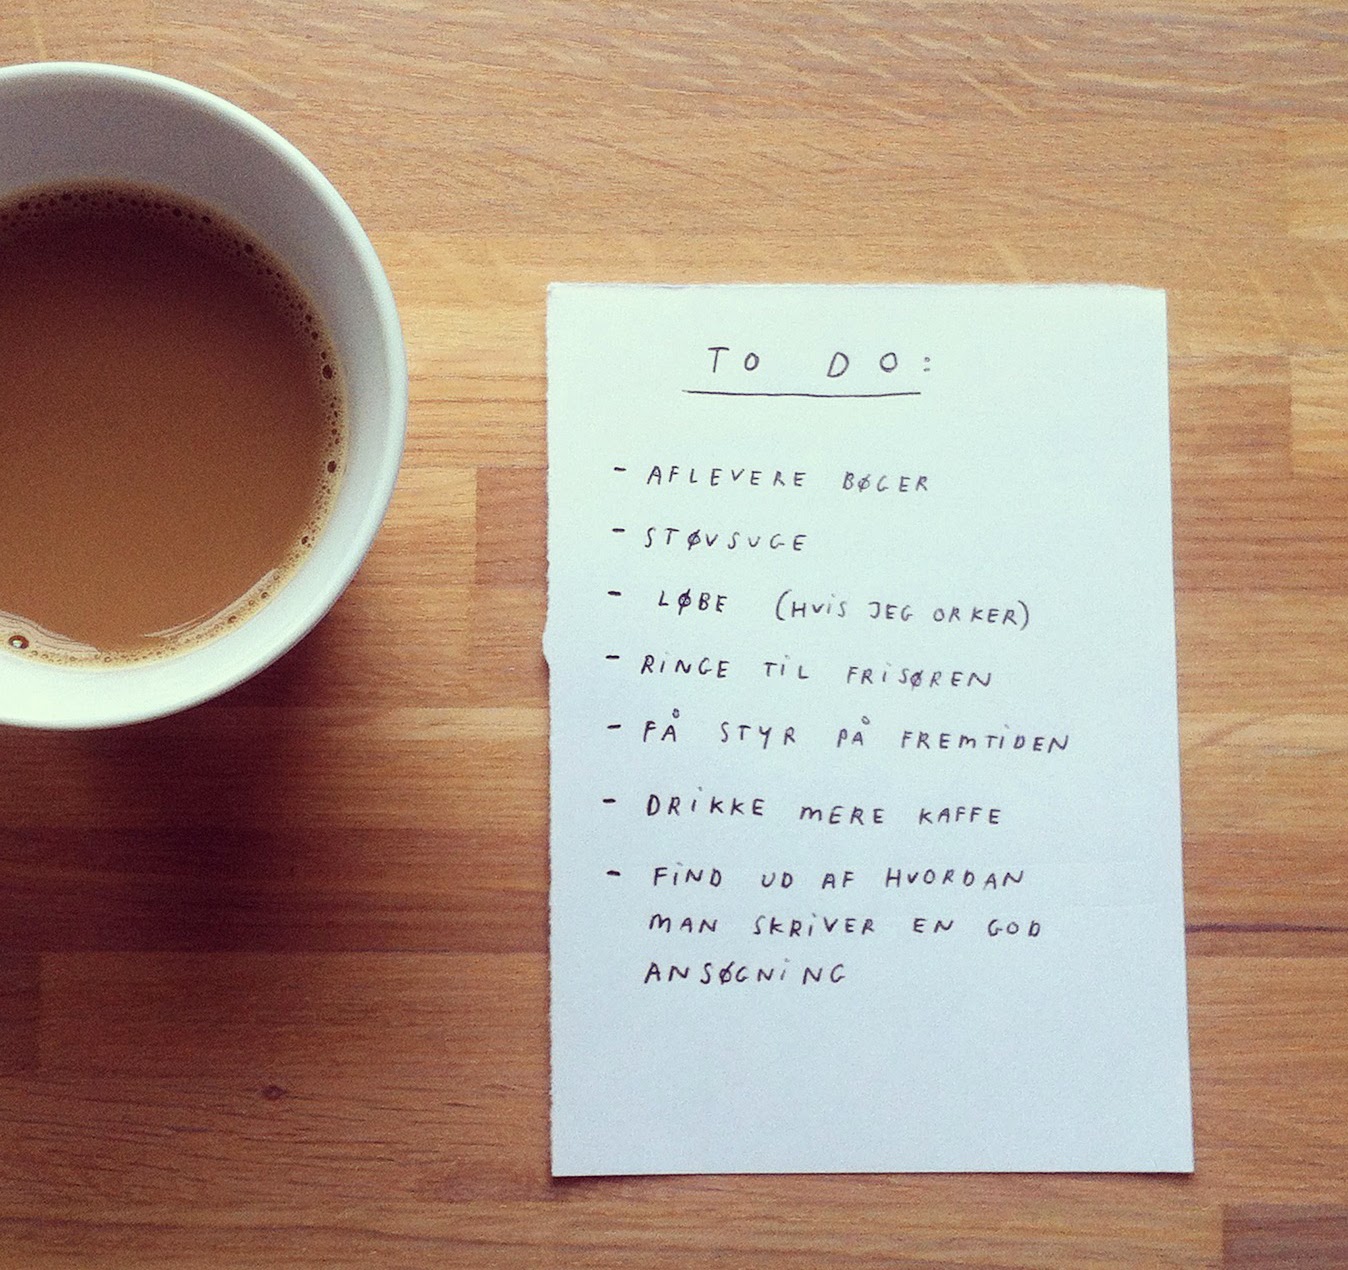 TO DO:
- AFLEVERE BØGER
- STØVSUGE
- LØBE (HVIS JEG ORKER)
- RINGE TIL FRISØREN
- FÅ STYR PÅ FREMTIDEN
- DRIKKE MERE KAFFE
- FIND UD AF HVORDAN
MAN SKRIVER EN GOD
ANSØGNING